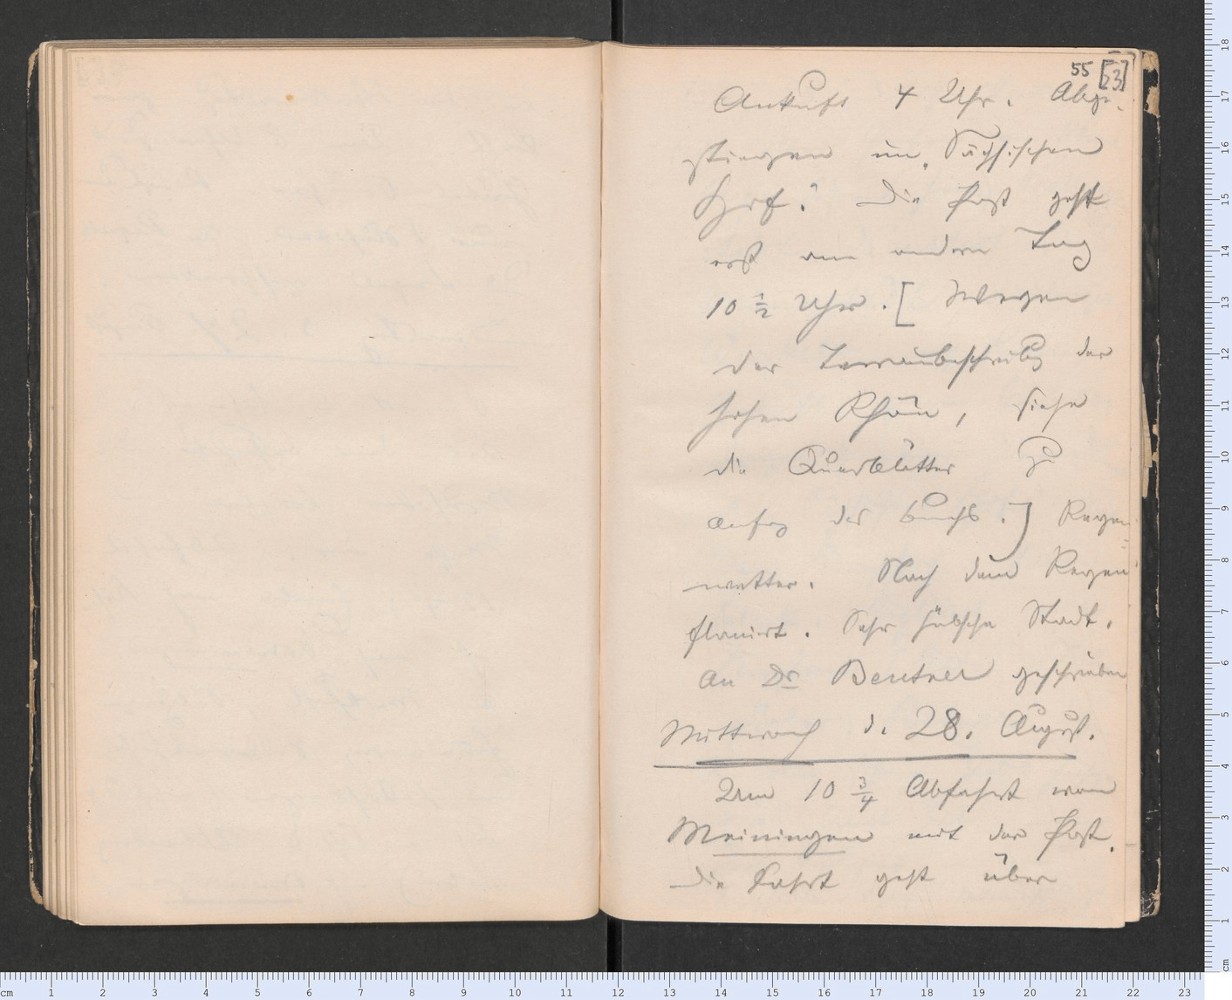 55 [53]
Ankuft 4 Uhr. Abge-
stiegen im „Sächsischen
Hof“. Die Post geht
erst am andern Tag
10 1/2 Uhr. [Wegen
der Terrainbeschreibg der
hohen Rhön, siehe
die Querblätter zu
Anfng des Buchs.] Regen-
wetter. Nach dem Regen
flanirt. Sehr hübsche Stadt.
An Dr Beutner geschrieben
Mittwoch d. 28. August.
Um 10 3/4 Abfahrt von
Meiningen mit der Post.
Die Fahrt geht über